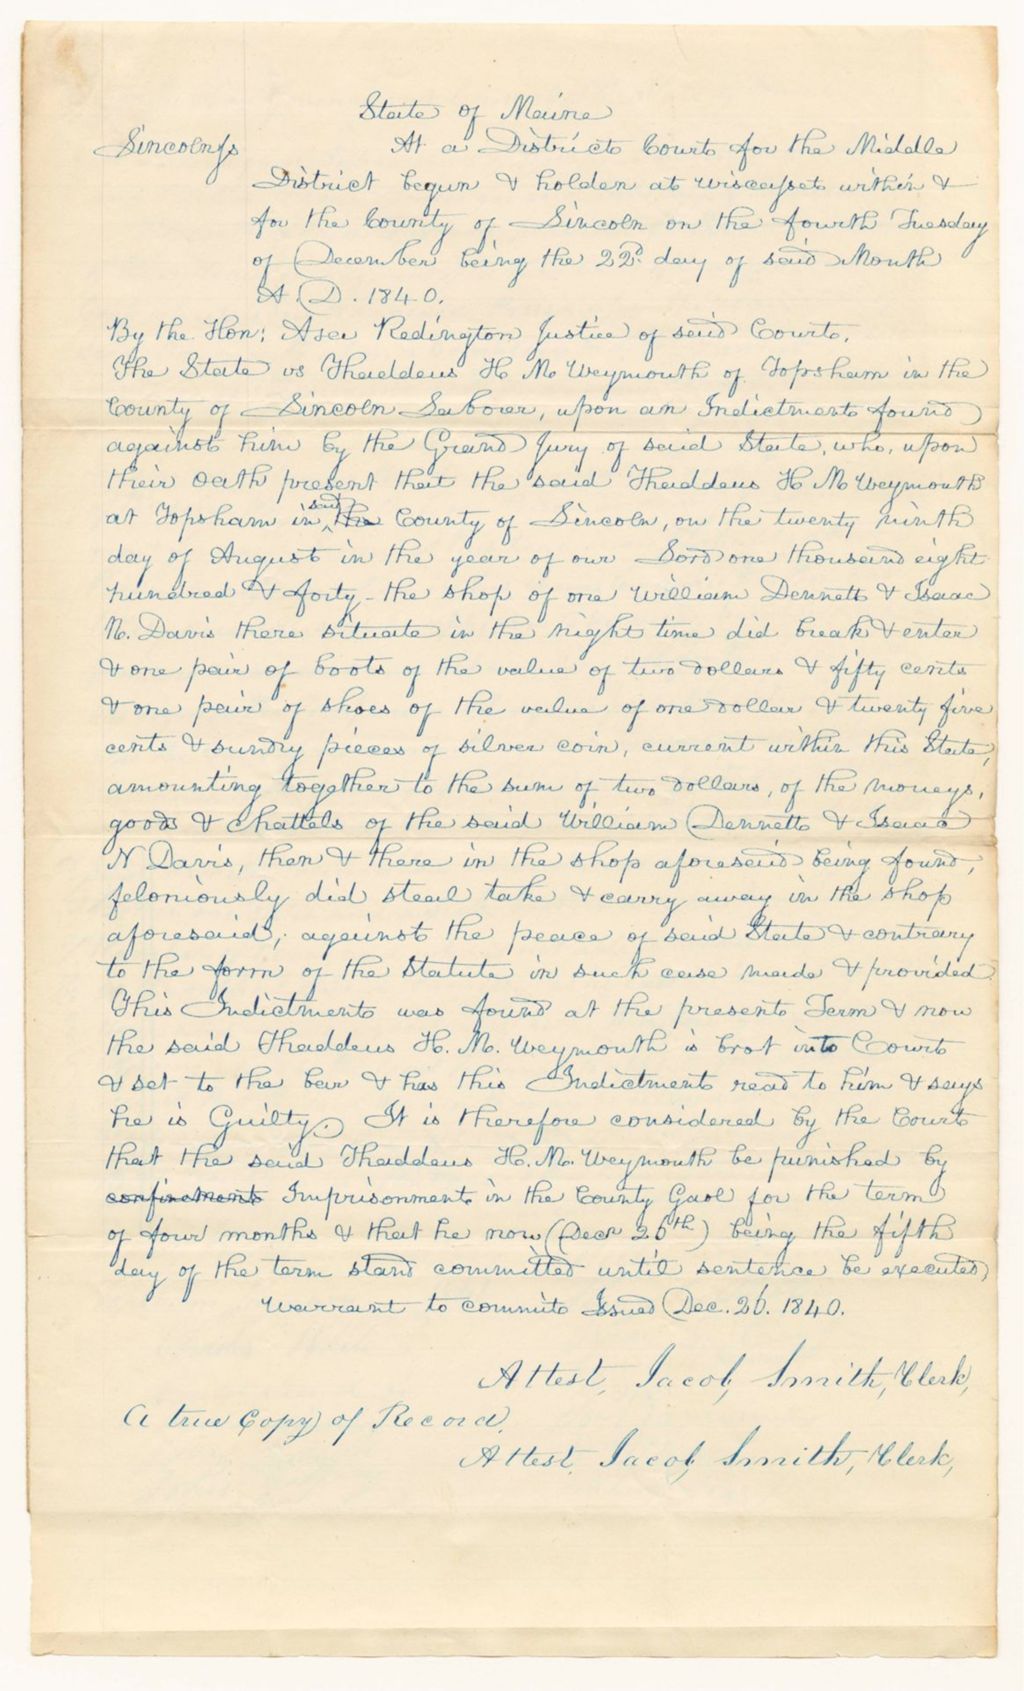 State of Maine
Lincoln ss At a District Court for the Middle
District begun & holden at Wiscasset within &
for the County of Lincoln on the fourth Tuesday
of December being the 22d. day of said Month
A.D. 1840.
By the Hon: Asa Redington Justice of said Court.
The State vs Thaddeus H M Weymouth of Topsham in the
County of Lincoln Laborer, upon an Indictment found
against him by the Grand Jury of said State, who, upon
their oath present that the said Thaddeus H M Weymouth
at Topsham in said the County of Lincoln, on the twenty ninth
day of August in the year of our Lord one thousand eight
hundred & forty - the shop of one William Dennett & Isaac
N. Davis there situate in the night time did break & enter
& one pair of boots of the value of two dollars & fifty cents
& one pair of shoes of the value of one dollar & twenty five
cents & sundry pieces of silver coin, current within this State,
amounting together to the sum of two dollars, of the moneys,
goods & chattels of the said William Dennett & Isaac
N Davis, then & there in the shop aforesaid being found,
feloniously did steal take & carry away in the shop
aforesaid, against the peace of said State & contrary
to the form of the Statute in such case made & provided
This Indictment was found at the present Term & now
the said Thaddeus H. M. Weymouth is brot into Court
& set to the bar & has this Indictment read to him & says
he is Guilty. It is therefore considered by the Court
that the said Thaddeus H. M. Weymouth be punished by
confinement Imprisonment in the County Gaol for the term
of four months & that he now (Decr 26th) being the fifth
day of the term stand committed until sentence be executed
Warrant to commit Issued Dec. 26. 1840.
Attest, Jacob Smith, Clerk,
A true Copy of Record.
Attest, Jacob Smith, Clerk,